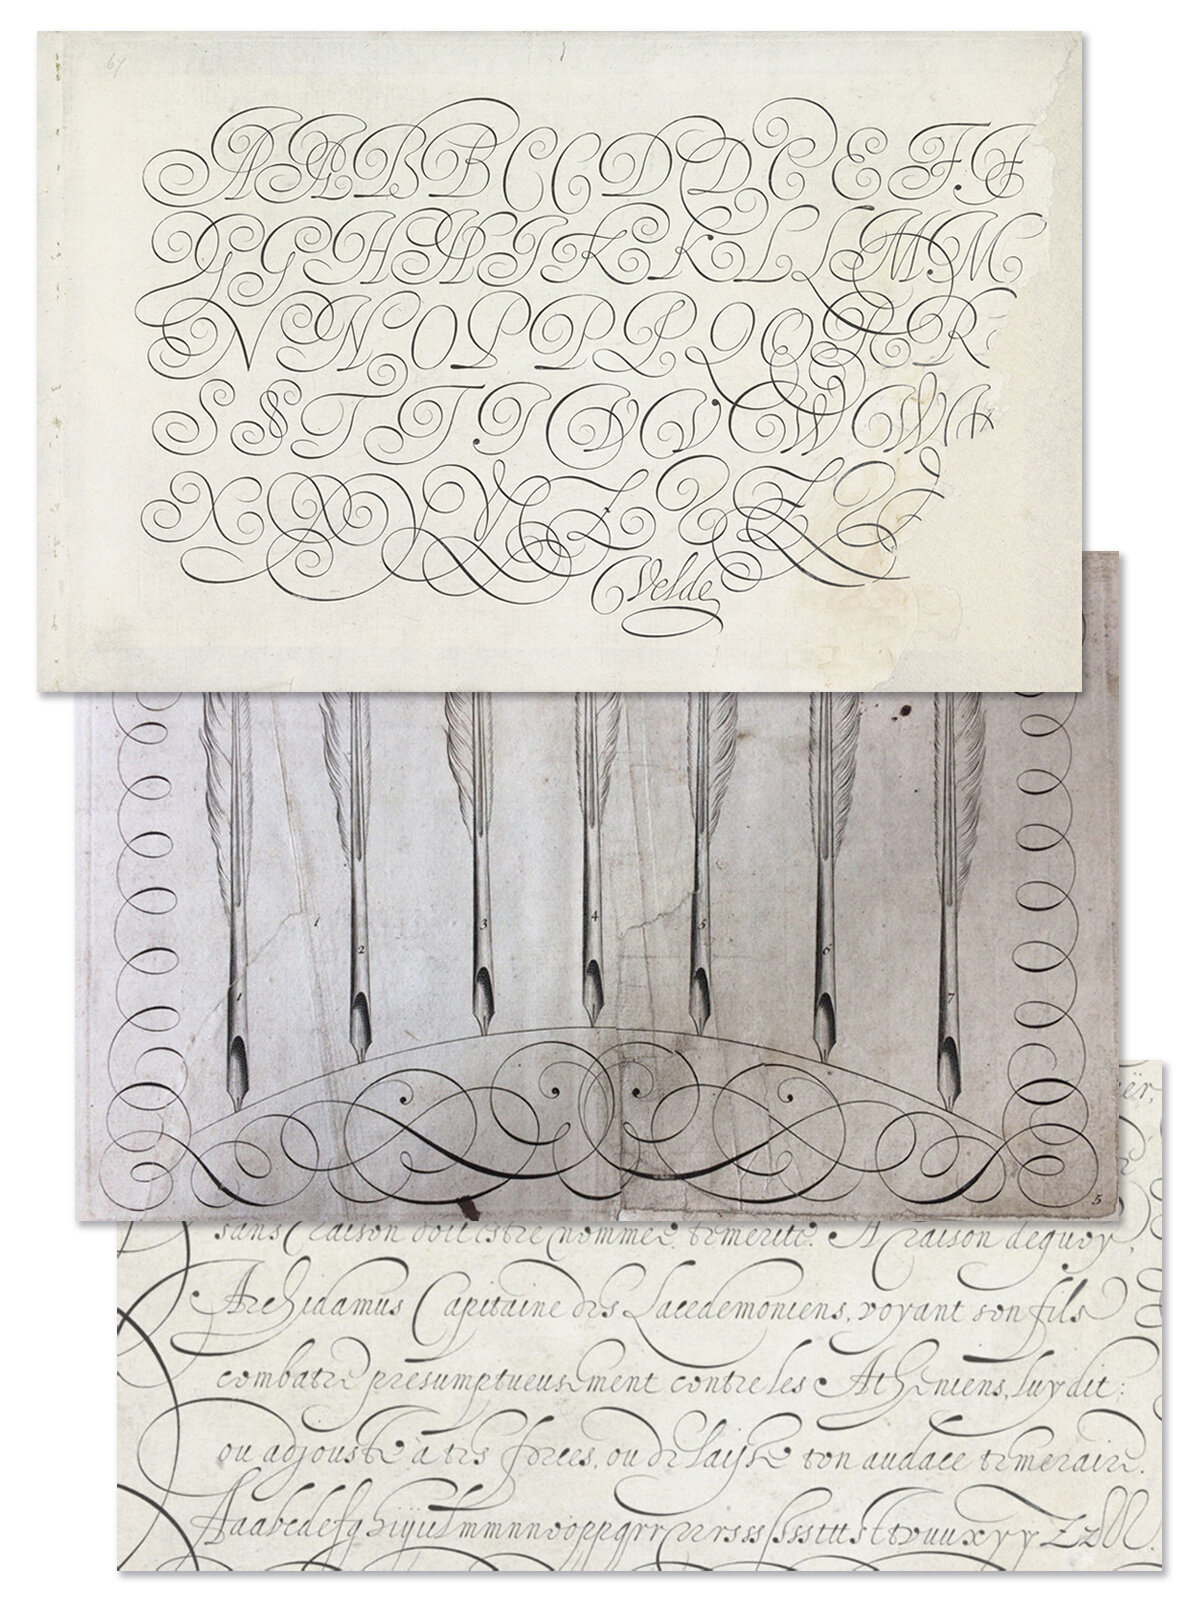 64
A A A B B C C D D E E F F
G G H H I K K L L M M
N N O P P P Q Q R R
S S T T T V V W W
X X Y Y Z Z Z Z
Velde
1 2 3 4 5 6 7
5
ër,
sans raison doit estre nommée temerité. A raison dequoy,
Archidamus Capitaine des Lacedemoniens, voyant son fils
combatre presumptueusement contre les Atheniens, luy dit:
ou adjouste à tes forces, ou delaisse ton audace temeraire.
Aaabcdefghiijklmmnnooppqrrrrsssssssttttstvuuxyyzz